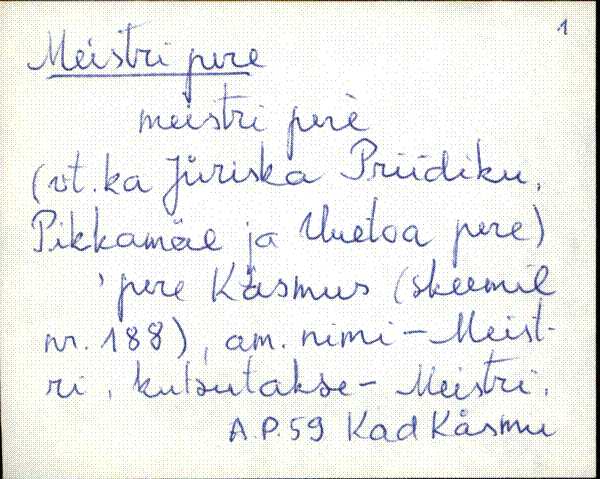 1
Meistri pere
meistri perè
(vt. ka Jüriska Priidiku,
Pikkamäe ja Uuetoa pere)
' pere Käsmus (skeemil
nr. 188), am. nimi – Meist-
ri, kutsutakse – Meistri.
A.P. 59 Kad Käsmu